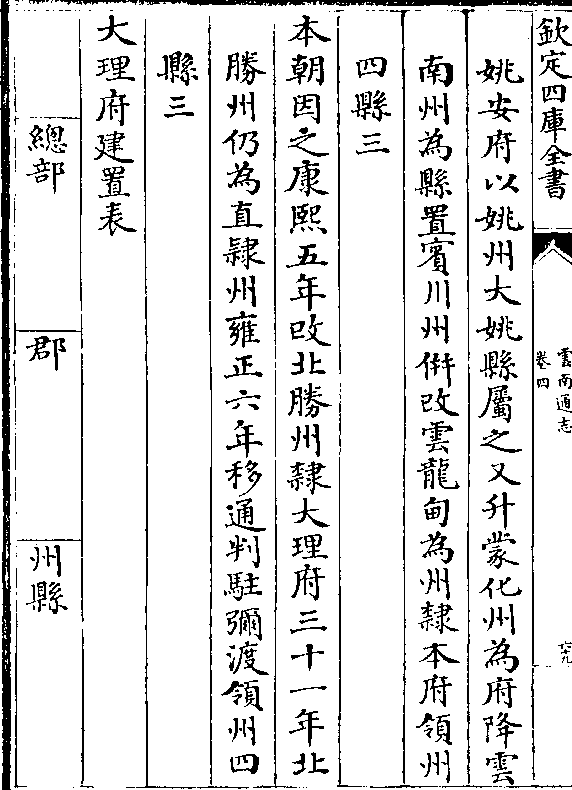 欽定四庫全書
雲南通志
卷四
六十九
姚安府以姚州大姚縣屬之又升蒙化州為府降雲
南州為縣置賓川州併改雲龍甸為州隸本府領州
四縣三
本朝因之康熙五年改北勝州隸大理府三十一年北
勝州仍為直隸州雍正六年移通判駐彌渡領州四
縣三
大理府建置表
總部
郡
州縣